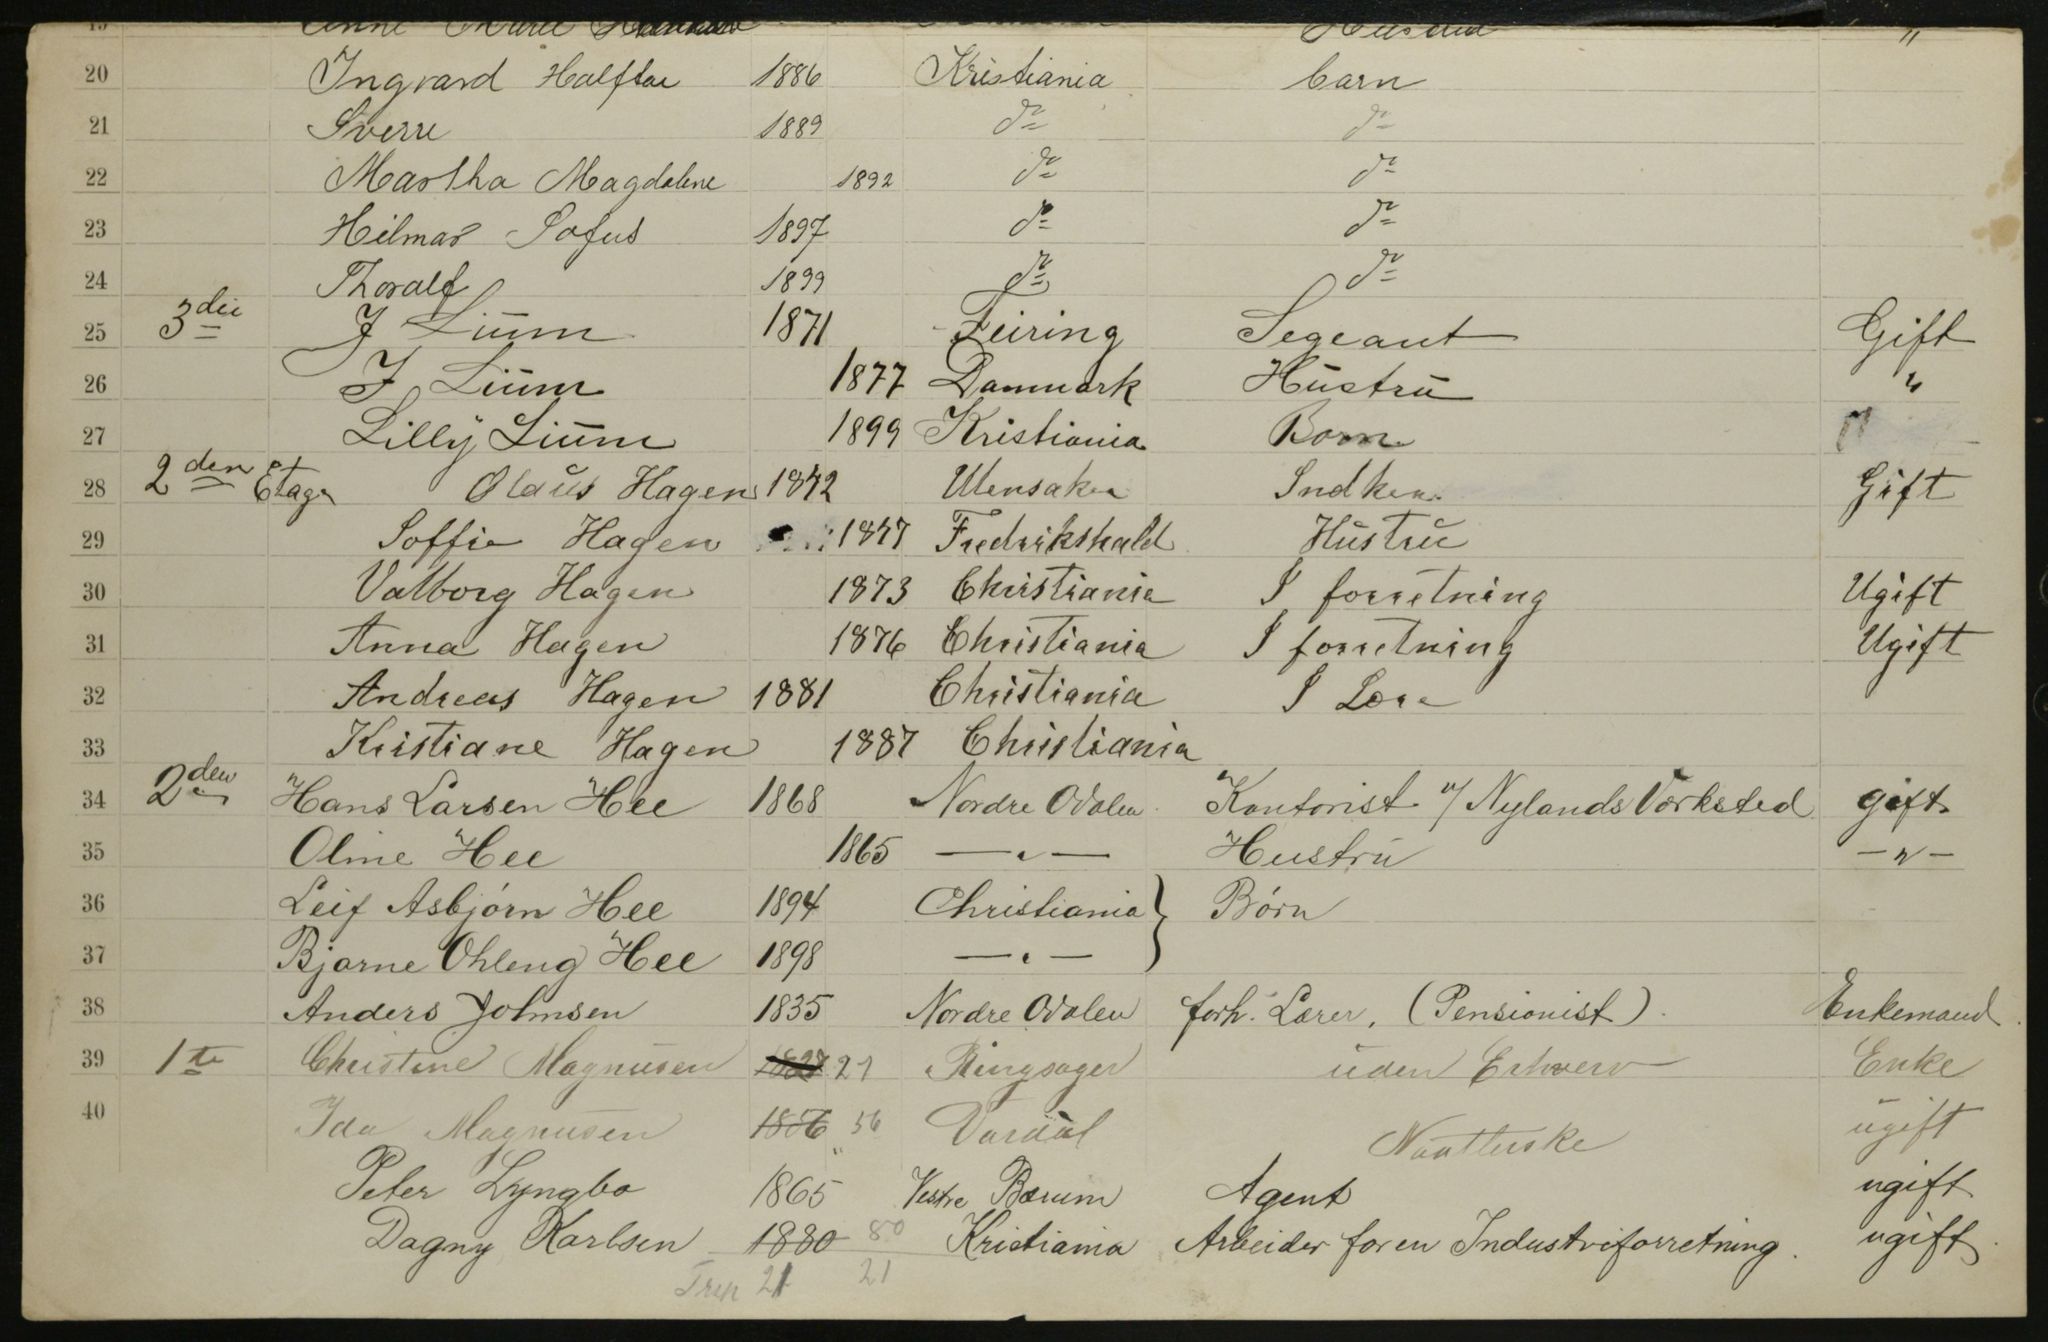 19 Anne Marie "
20 Ingvard Halftan 1886 Kristiania barn
21 Sverre 1889 do do
22 Martha Magdalene 1892 do do
23 Hilmar Sofus 1897 do do
24 Thoralf 1899 do do
25 3die J Lium 1871 Feiring Segeant Gift
26 J Lium 1877 Danmark Hustru "
27 Lilly Lium 1899 Kristiania Barn
28 2den Etage Olaus Hagen 1842 Ulensaker Indker. Gift
29 Soffie Hagen 1847 Fredrikshald Hustru
30 Valborg Hagen 1873 Christiania I forretning Ugift
31 Anna Hagen 1876 Christiania I forretning Ugift
32 Andreas Hagen 1881 Christiania I Lære
33 Kristiane Hagen 1887 Christiania
34 2den Hans Larsen Hee 1868 Nordre Odalen Kontorist v/ Nylands Værksted gift
35 Oline Hee 1865 — " — Hustru — " —
36 Leif Asbjörn Hee 1894 Christiania } Börn
37 Bjarne Ohleng Hee 1898 — " —
38 Anders Johnsen 1835 Nordre Odalen forh. Lærer, (Pensionist). Enkemand.
39 1te Christine Magnusen 1827 27 Ringsager uden Erhverv Enke
40 Ida Magnusen 1856 56 Vardal ugift
Peter Lyngbo 1865 " Vestre Bærum Agent ugift
Dagny Karlsen 1880 80 Kristiania Arbeider for en Industriforretning. ugift.
21 21